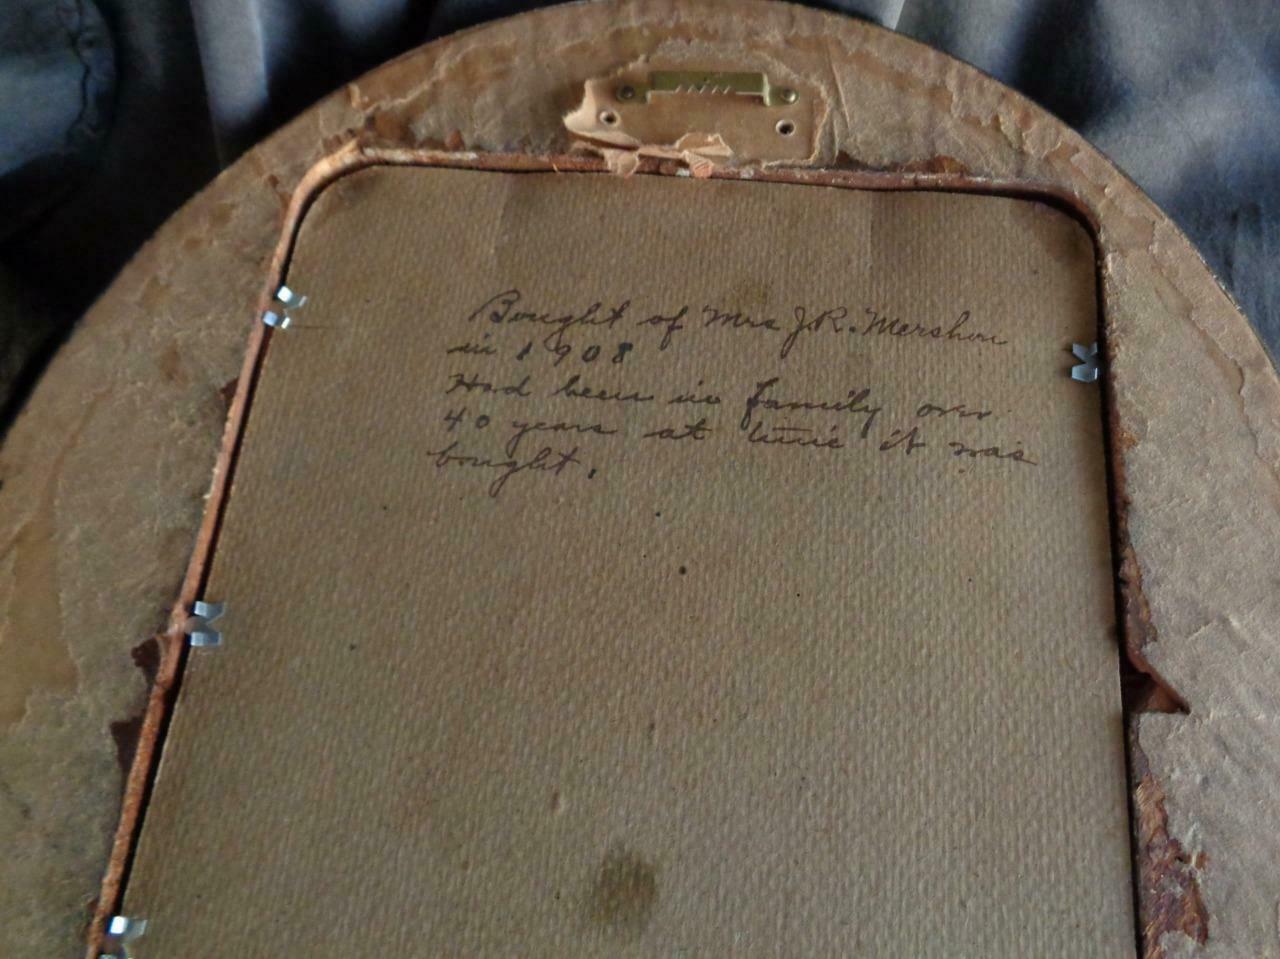 Bought of Mrs J.R. Mershon
in 1908
Had been in family over
40 years at time it was
bought.